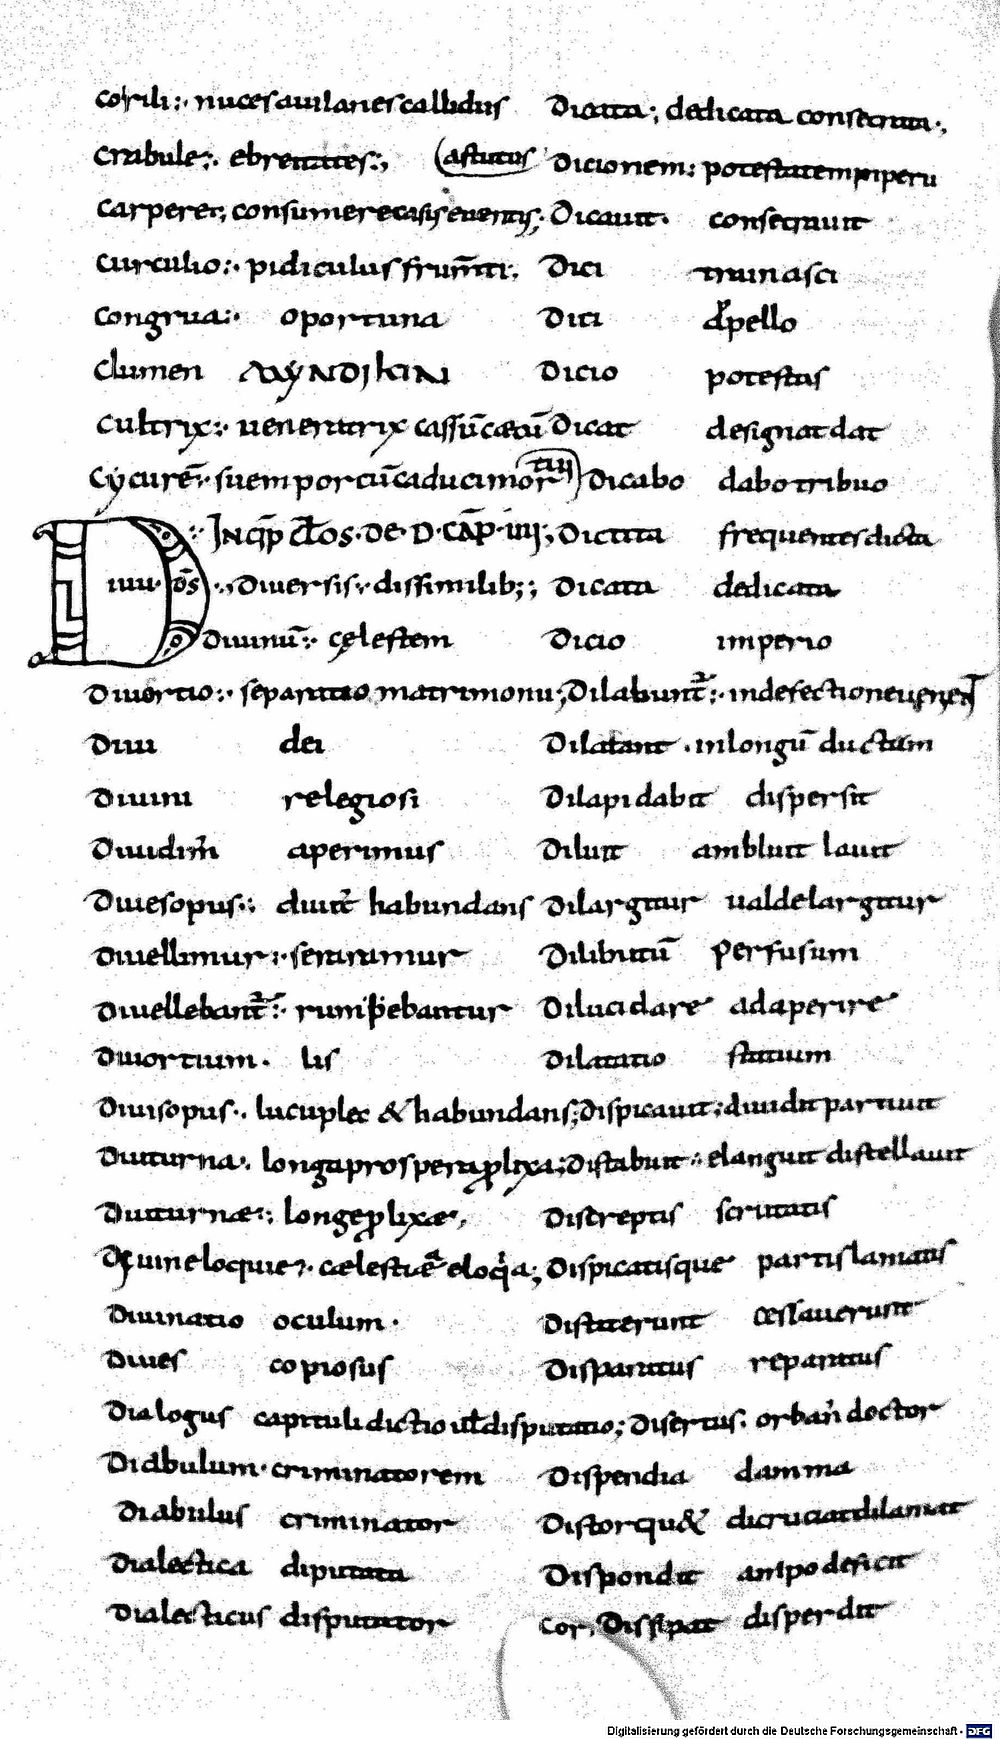 corili:· nuces auilanes callidus
crabule:· ebretates:,
(astutus
carperet; consumere casis euentis;
curculio:· pidiculus frum̄ti:,
congrua:· oportuna
clumen
cultrix:· ueneratrix cassū cæcū
cycurē:· suem porcū caduci mor
tui)
INCIP D̄OS·DE·D·CAP·IIII;
Diuu· ōs ·,Diuersis:· dissimilib;;
Diuinū:· cęlestem
Diuortio:· separatio matrimonii;
Diui dei
Diuini relegiosi
Diuidim̄ aperimus
Diuesopus:· diuit habundans
Diuellimur:· seraramur
Diuellebant̄:· rumpebantur
Diuortium· lis
Diuisopus·, lucuplet & habundans;
Diuturna·, longa prospera ꝓlixa;
Diuturnæ:, longe ꝓlixæ,
Diuineloquie:· cælestiē eloq̄a;
Diuinatio oculum·
Diues copiosus
Dialogus capituli dictio ul̄ disputatio;
Diabulum· criminatorem
Diabulus criminator
Dialectica diputata
Dialecticus disputator
Dicata; dedicata consecrata·,
Dicionem: potestatem inperii
Dicauit· consecrauit
Dici
Diti
Dicio potestas
Dicat designat dat
Dicabo dabo tribuo
Dictita frequentes dicta
Dicata dedicata
Dicio imperio
Dilabunt̄:· indefectione
Dilatant ·in longū ductum
Dilapidabit dispersit
Diluit ambluit lauit
Dilargitur ualde largitur
Dilibutū perfusum
Dilucidare adaperire
Dilatatio statium
Dispicauit; diuidit partiuit
Distabuit:· elanguit distellauit
Discreptis scrutatis
Dispicatisque partis laniatis
Distiterunt cessauerunt
Disparatus reparatus
Disertus: orban̄ doctor
Dispendia damma
Distorqu& dicruciat dilaniat
Dispondit animo deficit
cor, Dissipat disperdit
Digitalisierung gefördert durch die Deutsche Forschungsgemeinschaft · DFG